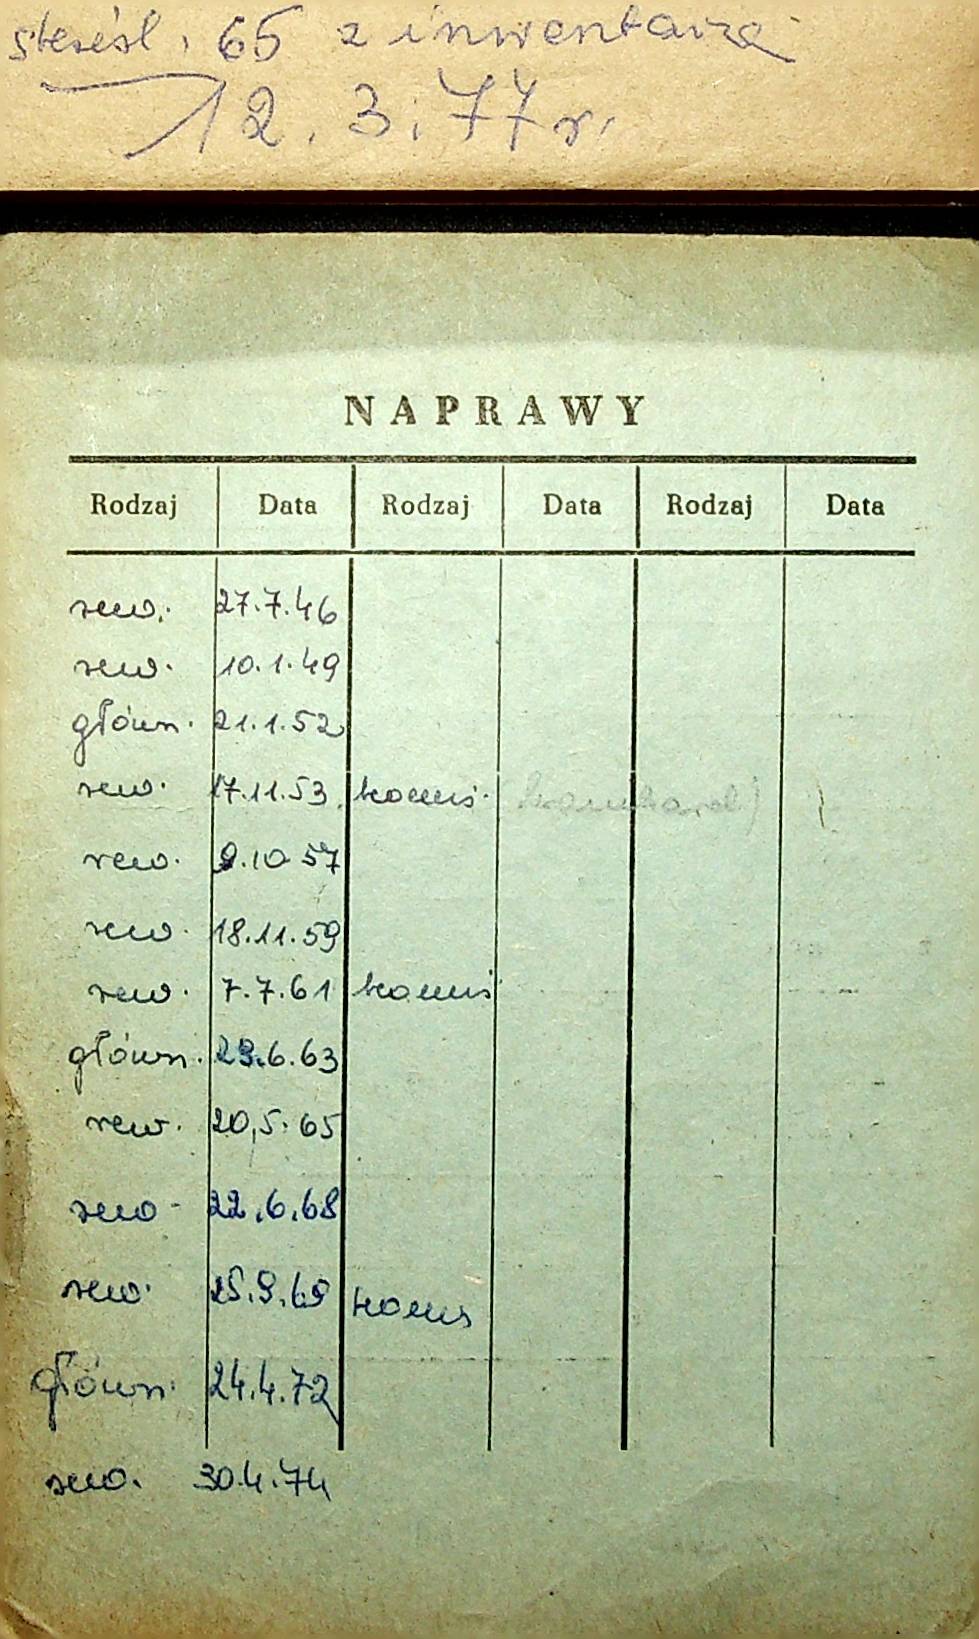 skreśl. 65 z inwentarza
12.3.77r.
NAPRAWY
Rodzaj Data Rodzaj Data Rodzaj Data
rew. 27.7.46
rew. 10.1.49
główn. 21.1.52
rew. 17.11.53
rew. 9.10 57
rew. 18.11.59
rew. 7.7.61
główn. 23.6.63
rew. 20,5.65
rew - 22.6.68
rew. 25.9.69
główn. 24.4.72
rew. 30.4.74